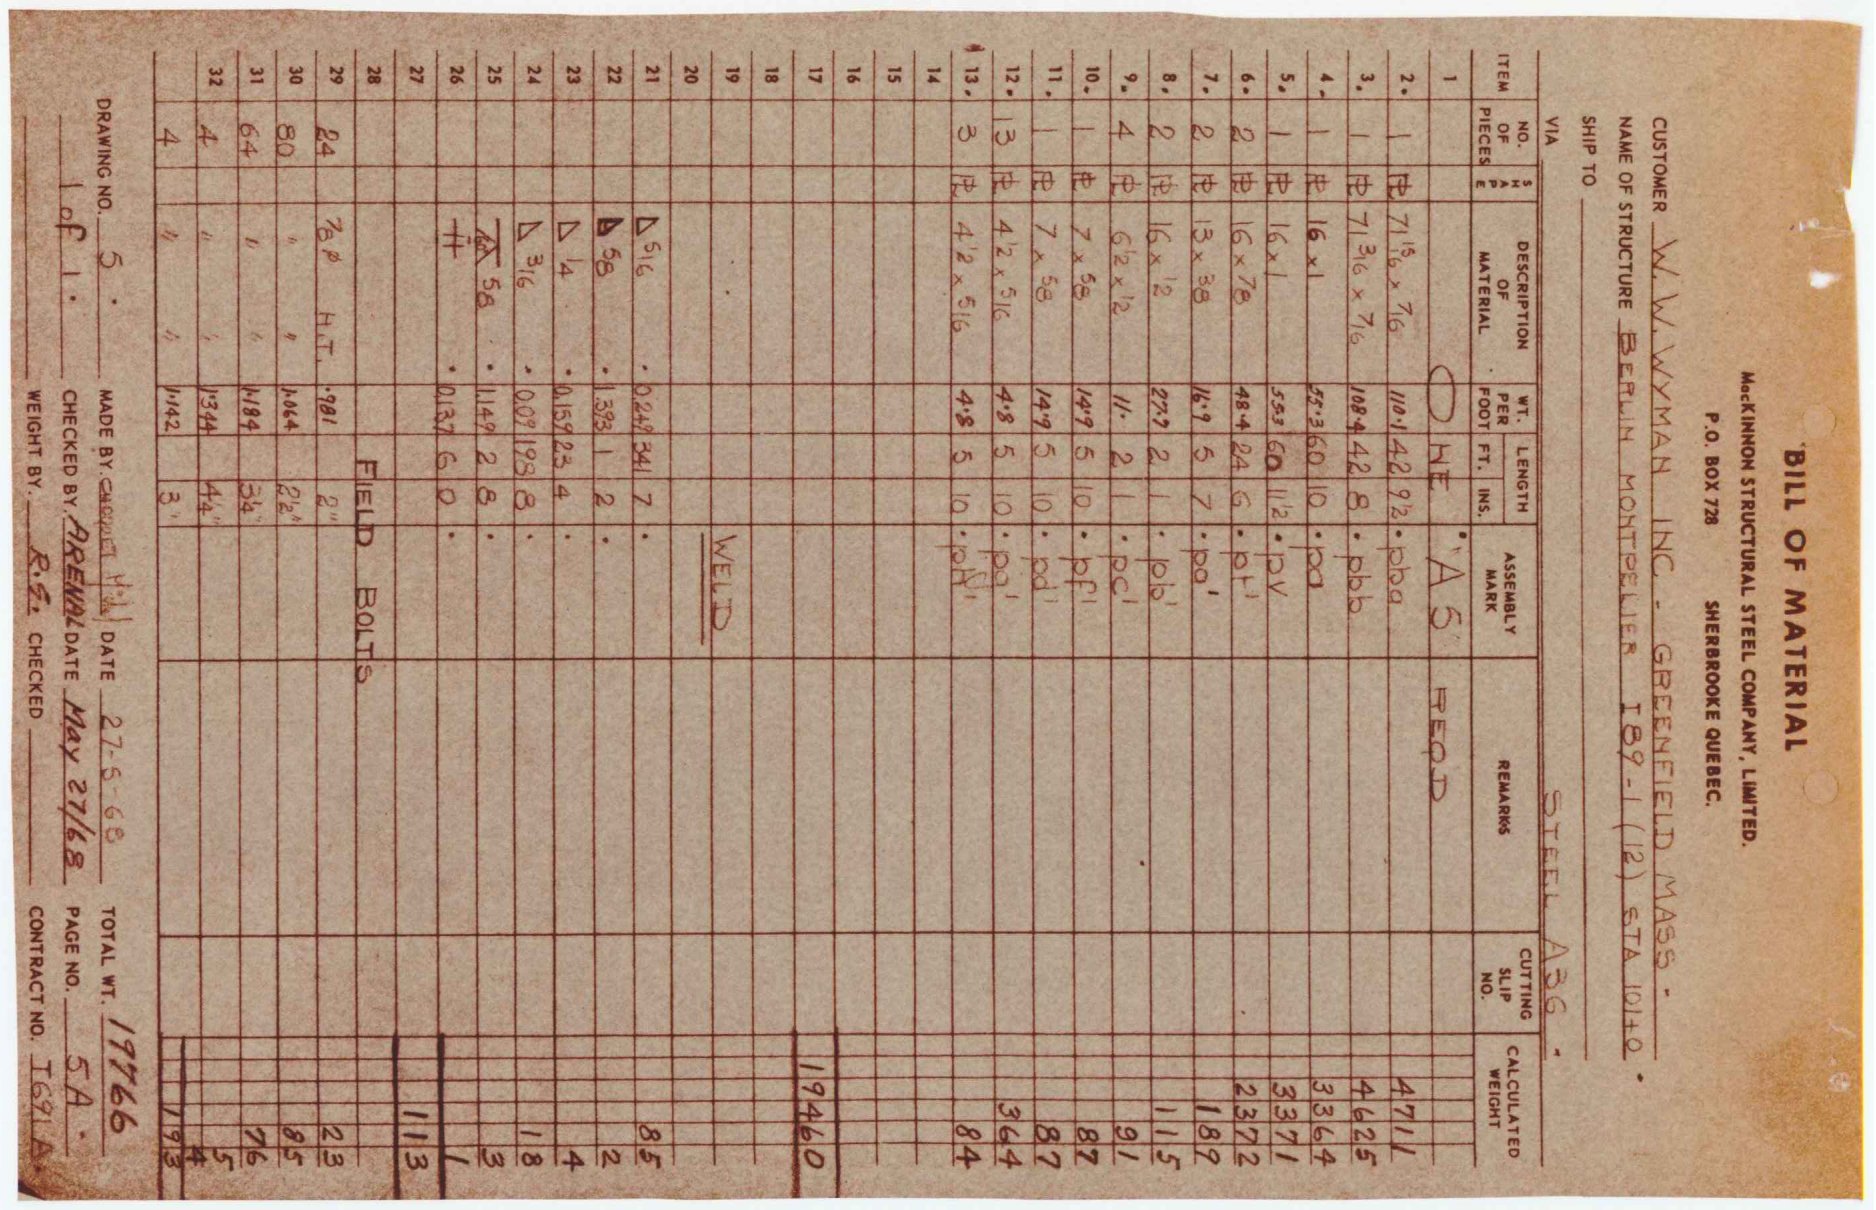 BILL OF MATERIAL
MacKINNON STRUCTURAL STEEL COMPANY, LIMITED.
P.O. BOX 728 SHERBROOKE QUEBEC.
CUSTOMER W. W. WYMAN INC - GREENFIELD MASS -
NAME OF STRUCTURE BERLIN MONTPELIER I89-1 (12) STA 101+0 .
SHIP TO
VIA STEEL A36 -
ITEM NO. OF PIECES SHAPE DESCRIPTION OF MATERIAL WT. PER FOOT LENGTH FT. INS. ASSEMBLY MARK REMARKS CUTTING SLIP NO. CALCULATED WEIGHT
1 ONE "A5" REQD
2. 1 PL 71 15/16 x 7/16 110.1 42 9 1/2 . pba 4711
3. 1 PL 71 3/16 x 7/16 108.4 42 8 . pbb 4625
4. 1 PL 16 x 1 55.3 60 10 . pa 3364
5. 1 PL 16 x 1 55.3 60 11 1/2 . pv 3371
6. 2 PL 16 x 7/8 48.4 24 6 . 2372
7. 2 PL 13 x 3/8 16.9 5 7 . pa' 189
8. 2 PL 16 x 1/2 27.7 2 1 . pb' 115
9. 4 PL 6 1/2 x 1/2 11. 2 1 . pc' 91
10. 1 PL 7 x 5/8 14.9 5 10 . pf' 87
11. 1 PL 7 x 5/8 14.9 5 10 . pd' 87
12. 13 PL 4 1/2 x 5/16 4.8 5 10 . 364
13. 3 PL 4 1/2 x 5/16 4.8 5 10 . 84
14
15
16
17 19460
18
19 WELD
20
21 5/16 . 0.249 341 7 . 85
22 5/8 . 1.393 1 2 . 2
23 1/4 . 0.159 23 4 . 4
24 3/16 . 0.091 198 8 . 18
25 5/8 . 1.149 2 8 . 3
26 . 0.137 6 0 . 1
27 113
28 FIELD BOLTS
29 24 7/8 φ H.T. .981 2" 23
30 80 " " 1.064 2 1/2" 85
31 64 " " 1.184 3 1/4" 76
32 4 " " 1.344 4 1/4" 5
4 " " 1.142 3" 4
193
DRAWING NO. 5 . MADE BY. DATE 27-5-68 TOTAL WT. 19766
1 of 1. CHECKED BY. ARENAL DATE May 27/68 PAGE NO. 5A .
WEIGHT BY. R.S. CHECKED CONTRACT NO. I691A.